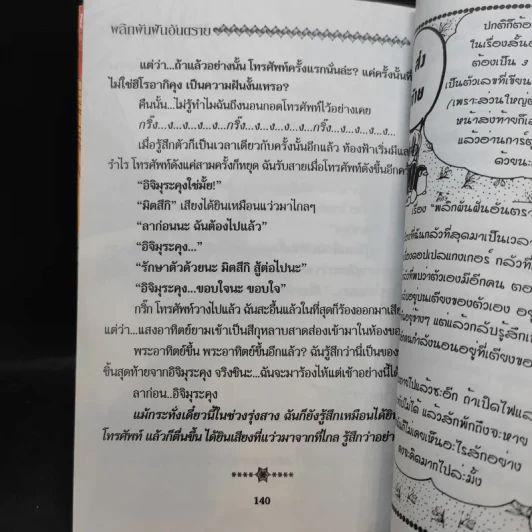 พลิกผันฝันอันตราย
แต่ว่า...ถ้าแล้วอย่างนั้น โทรศัพท์ครั้งแรกนั่นล่ะ? แค่ครั้งนั้นที่
ไม่ใช่ฮิโรอากิคุง เป็นความฝันงั้นเหรอ?
คืนนั้น...ไม่รู้ทำไมฉันถึงนอนกอดโทรศัพท์ไว้อย่างเคย
กริ๊ง...ง...ง...ง...ง...กริ๊ง...ง...ง...ง...ง...กริ๊ง...ง...ง...ง...ง...
เมื่อรู้สึกตัวก็เป็นเวลาเดียวกับครั้งนั้นอีกแล้ว ท้องฟ้าเริ่มมีแสง
รำไร โทรศัพท์ดังแค่สามครั้งก็หยุด ฉันรับสายเมื่อโทรศัพท์ดังขึ้นอีกครั้ง
“อิจิมุระคุงใช่มั้ย!”
“มิตสึกิ” เสียงได้ยินเหมือนแว่วมาไกลๆ
“ลาก่อนนะ ฉันต้องไปแล้ว”
“อิจิมุระคุง...”
“รักษาตัวด้วยนะ มิตสึกิ สู้ต่อไปนะ”
“อิจิมุระคุง...ขอบใจนะ ขอบใจ”
กริ๊ก โทรศัพท์วางไปแล้ว ฉันสะอื้นแล้วในที่สุดก็ร้องออกมาเสียง
แต่ว่า...แสงอาทิตย์ยามเช้าเป็นสีกุหลาบสาดส่องเข้ามาในห้องของ
พระอาทิตย์ขึ้น พระอาทิตย์ขึ้นอีกแล้ว? ฉันรู้สึกว่านี่เป็นของ
ชิ้นสุดท้ายจากอิจิมุระคุง จริงซินะ...ฉันจะมาร้องไห้แต่เช้าอย่างนี้ได้
ลาก่อน..อิจิมุระคุง
แม้กระทั่งเดี๋ยวนี้ในช่วงรุ่งสาง ฉันก็ยังรู้สึกเหมือนได้ยิน
โทรศัพท์ แล้วก็ตื่นขึ้น ได้ยินเสียงที่แว่วมาจากที่ไกล รู้สึกว่าอย่า
140
ปกติก็ต้อง
ในเรื่องสั้น
ต้องเป็น 3
เป็นตัวเลขที่เขียน
(เพราะส่วนใหญ่
หน้าส่งท้ายก็เ
แล้วอ่านการ์ตู
ด้วยนะ
ส่ง
ท้าย
เรื่อง “พลิกผันฝันอันตรา
ที่ฉันกลัวที่สุดมาเป็นเวลา
องดอปเปลแกงเกอร์ กลัวที่
ที่พบว่าตัวเองมีอีกคน
อยู่บนเตียงของตัวเอง อยู่
ข้างๆ แต่แล้วกลับรู้สึกเ
กำลังนอนอยู่ที่เตียงของ
ไปแล้วซะอีก ถ้าเปิดไฟแล
ไม่ได้ แล้วสักพักถึงจะหาย
ไม่เคยเห็นอะไรสักอย่าง
จะคิดมากไปล่ะมั้ง